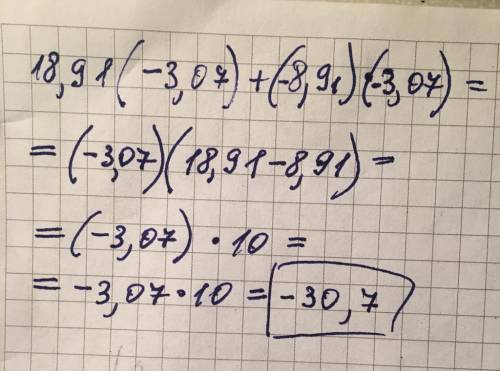 18,91(-3,07)+(-8,91)(-3,07)=
=(-3,07)(18,91-8,91)=
=(-3,07)·10=
=-3,07·10=-30,7